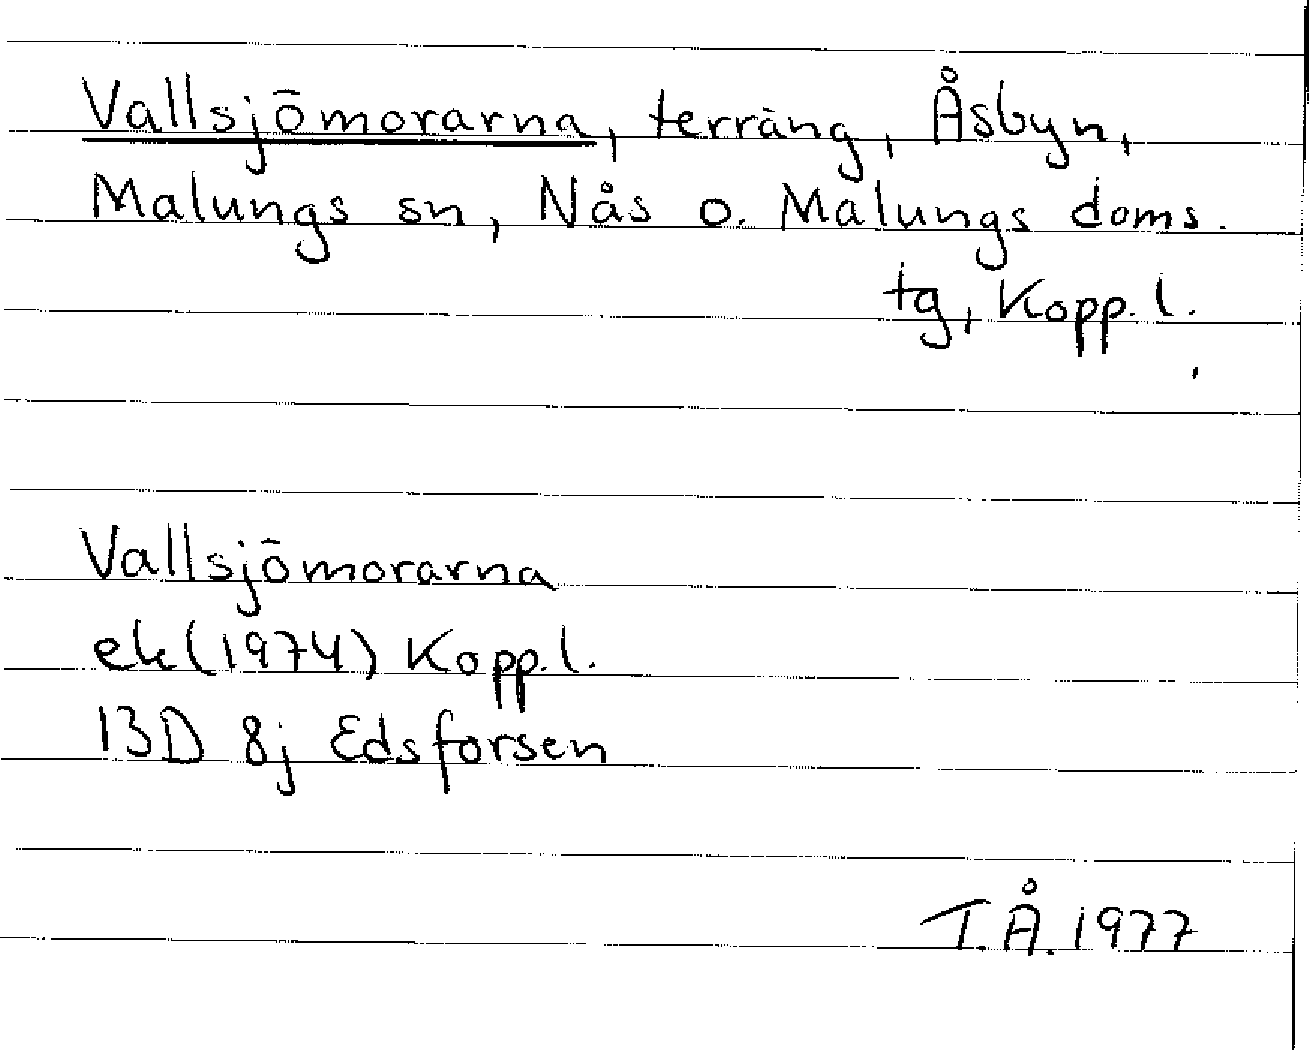 Vallsjömorarna, terräng, Åsbyn,
Malungs sn, Nås o. Malungs doms.
tg, Kopp. l.
Vallsjömorarna
ek (1974) Kopp. l.
13D 8j Edsforsen
T.Å. 1977